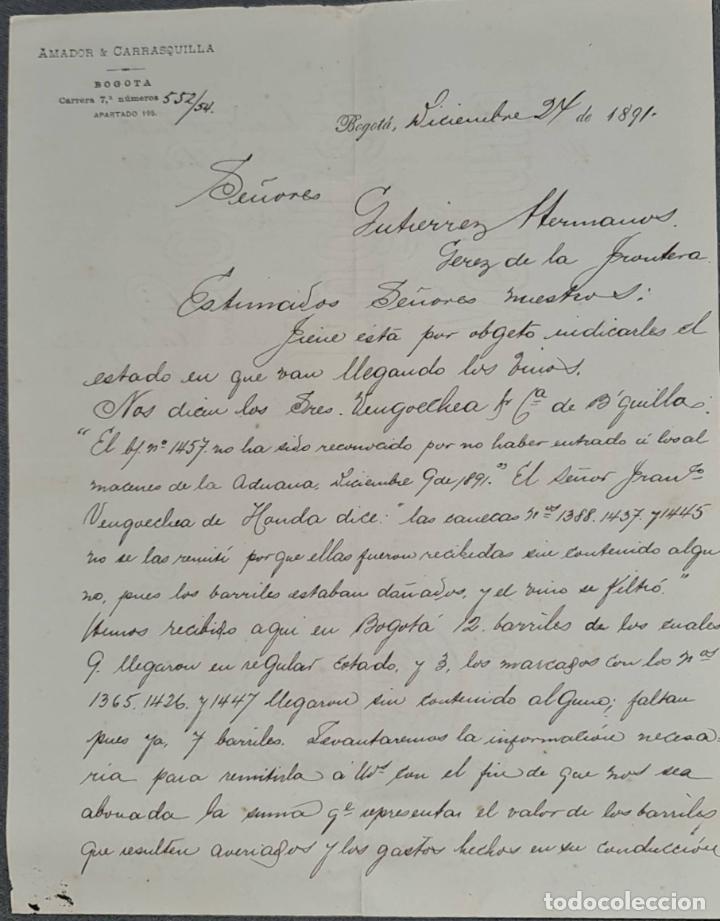 AMADOR & CARRASQUILLA
BOGOTA
Carrera 7,ª números 552/54.
APARTADO 195.
Bogotá, Diciembre 24 de 1891.
Señores
Gutierrez Hermanos.
Gerez de la Frontera.
Estimados Señores nuestros:
Tiene esta por obgeto indicarles el
estado en que van llegando los vinos.
Nos dicen los Sres. Vengoechea & Cª de B'quilla:
"El bj. nº 1457. no ha sido reconocido por no haber entrado á los al
macenes de la Aduana, Diciembre 9 de 1891." El Señor Franco
Vengoechea de Honda dice: "las canecas nos 1388. 1437. y 1445
no se las remití porque ellas fueron recibidas sin contenido algu
no, pues los barriles estaban dañados, y el vino se filtró."
Hemos recibido aqui en Bogotá 12. barriles de los cuales
9. llegaron en regular estado, y 3, los marcados con los nos
1365. 1426. y 1447 llegaron sin contenido alguno; faltan
pues ya, 7 barriles. Levantaremos la información necesa-
ria para remitirla á Uds con el fin de que nos sea
abonada la suma qe representan el valor de los barriles
que resulten averiados y los gastos hechos en su conducción
todocoleccion